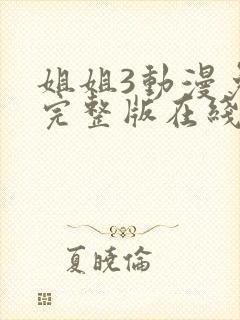 姐姐3動漫
完整版在綫
夏曉倫